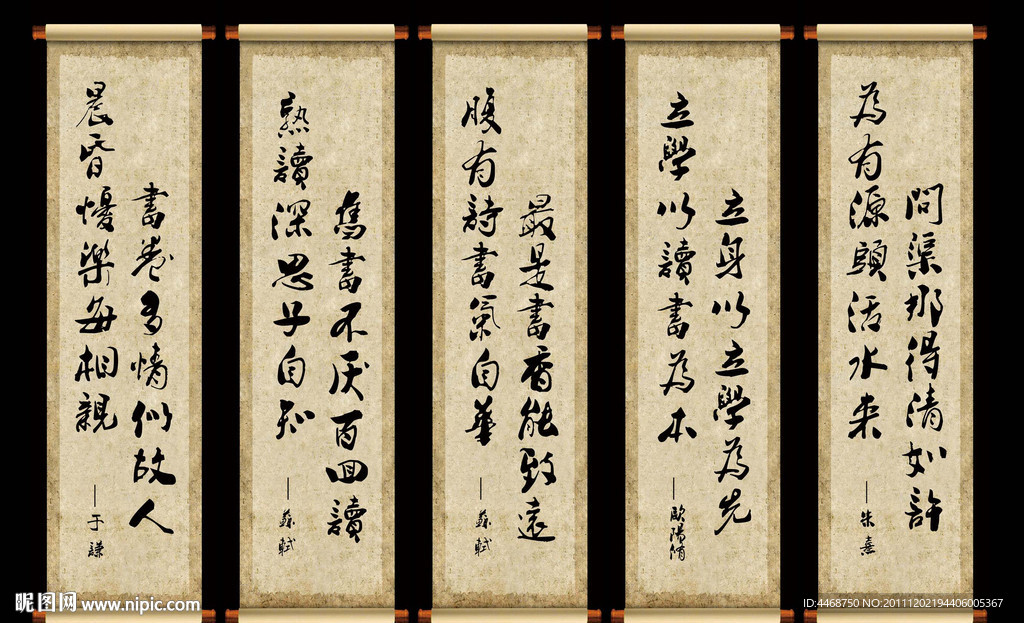 問渠那得清如許
為有源頭活水来
—朱熹
立身以立學為先
立學以讀書為本
—歐陽脩
最是書香能致遠
腹有詩書氣自華
—蘇軾
舊書不厌百回讀
熟讀深思子自知
—蘇軾
書卷多情似故人
晨昏懮樂每相親
—于謙
昵图网 www.nipic.com
ID:4468750 NO:20111202194406005367